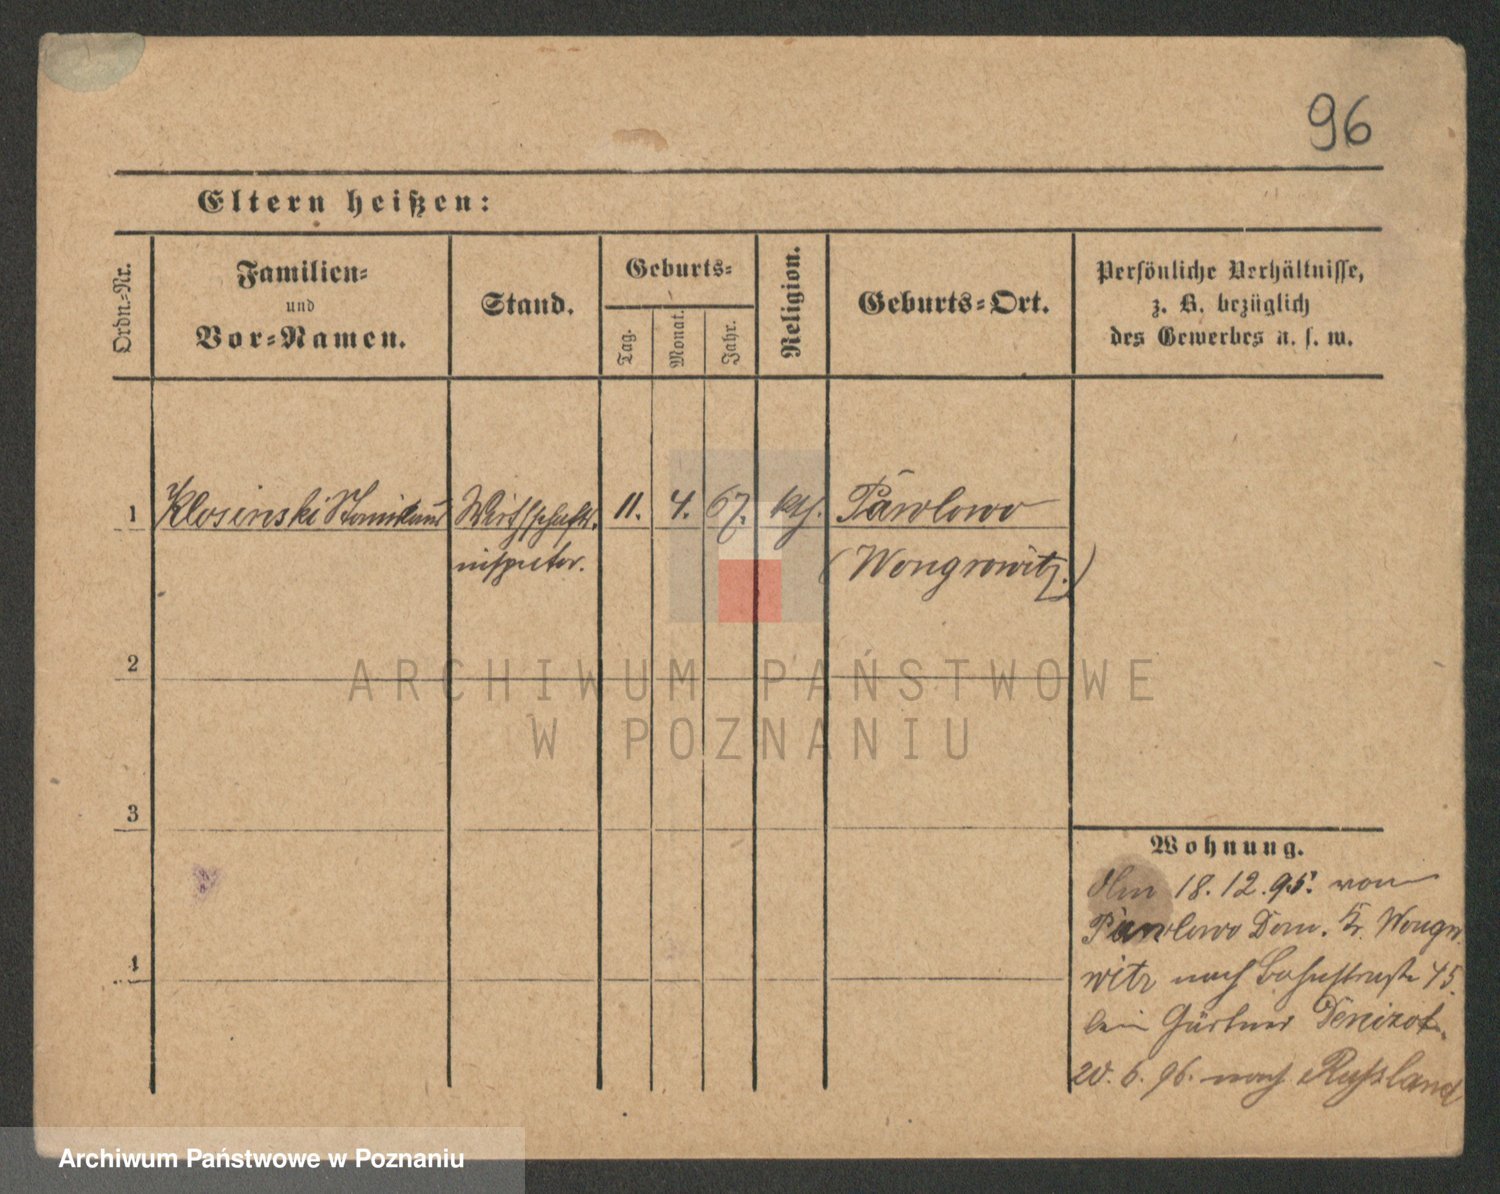 96
Eltern heißen:
Ordn.-Nr.
Familien-
und
Vor-Namen.
Stand.
Geburts-
Tag.
Monat.
Jahr.
Religion.
Geburts-Ort.
Persönliche Verhältnisse,
z. B. bezüglich
des Gewerbes u. s. w.
1 Klosinski Wirthschafts- 11. 4. 67. kth. Pawlowo
inspector. (Wongrowitz.)
2
ARCHIWUM PAŃSTWOWE
W POZNANIU
3
Wohnung.
18.12.95. von
Pawlowo Dom. Kr. Wongro
witz nach Bahnstraße 45.
bei Gärtner Denizot.
20.6.96. nach Russland
4
Archiwum Państwowe w Poznaniu